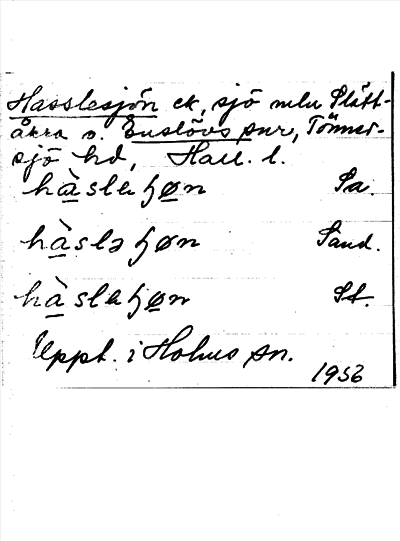 Hasslesjön ek, sjö mlu Slätt-
åkra o. Enslövs snr, Tönner-
sjö hd, Hall. l.
hàsləɧøn Sa.
hàsləɧøn Sand.
hàsləɧøn St.
Uppt. i Holms sn.
1956